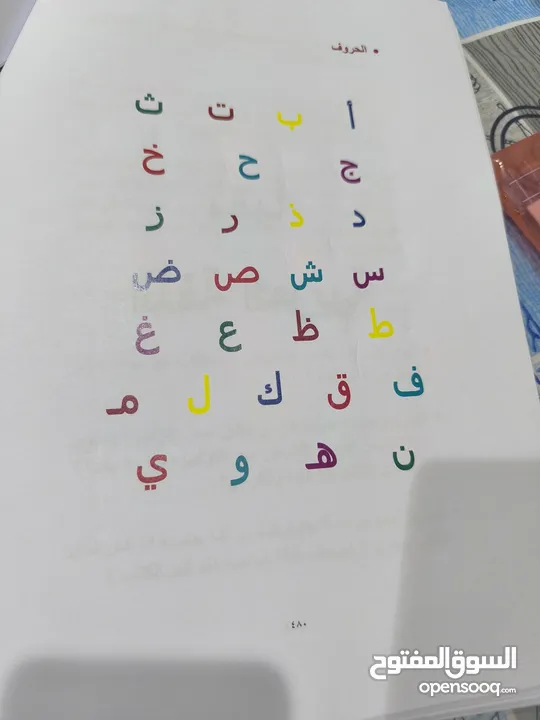 • الحروف
أ ب ت ث
ج ح خ
د ذ ر ز
س ش ص ض
ط ظ ع غ
ف ق ك ل مـ
ن هـ و ي
٤٨٠
السوق المفتوح
opensooq.com